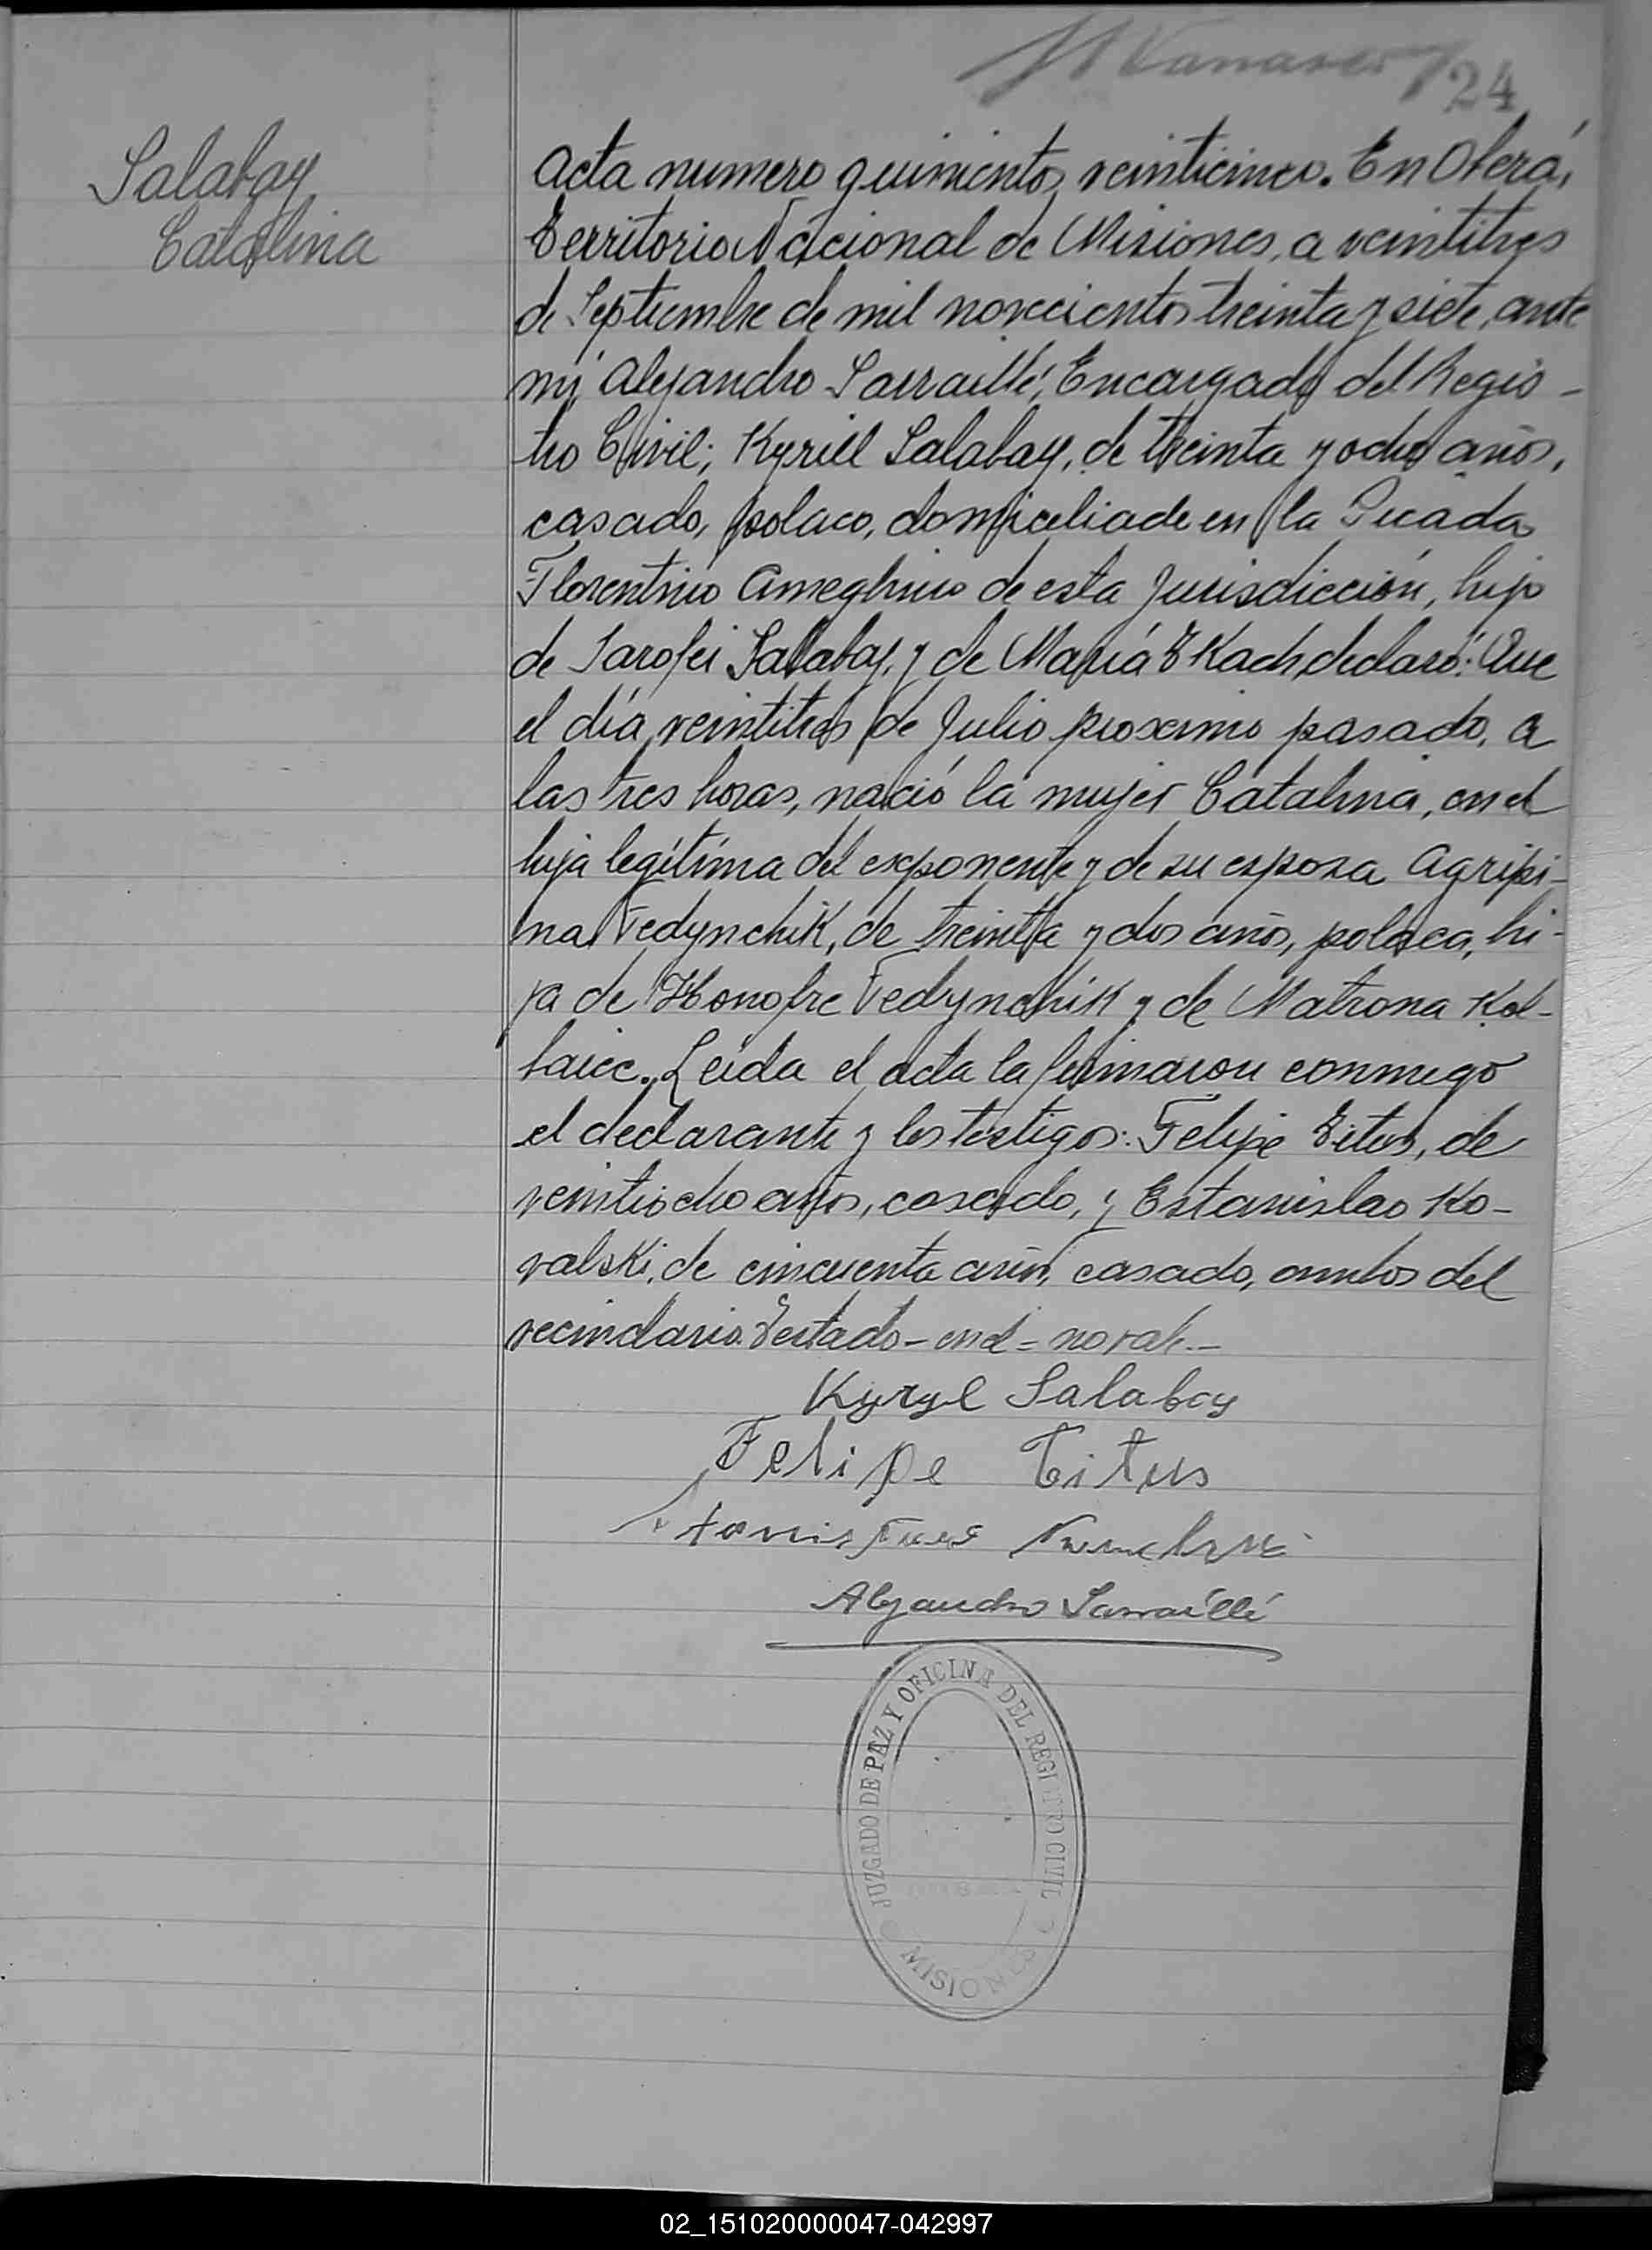 24
Salabay
Catalina
Acta numero quinientos veinticinco. En Oberá,
Territorio Nacional de Misiones, a veintitres
de Septiembre de mil novecientos treinta y siete, ante
mí Alejandro Sarraillé, Encargado del Regis-
tro Civil; Kyrill Salabay, de treinta y ocho años,
casado, polaco, domiciliado en la Picada
Florentino Ameghino de esta Jurisdicción, hijo
de Salabay, y de María Tkach, declaró: Que
el día veintitres de Julio proximo pasado, a
las tres horas, nació la mujer Catalina, en el
hija legítima del exponente y de su esposa Agripi-
na Fedynchik, de treinta y dos años, polaca, hi-
ja de Honofre Fedynchik y de Matrona Kol-
Leida el acta la firmaron conmigo
el declarante y los testigos: Felipe Titus, de
veintiocho años, casado, y Estanislao Ko-
valski, de cincuenta años, casado, ambos del
vecindario. Testado-en el=no vale.-
Kyryl Salabay
Felipe Titus
Alejandro Sarraillé
JUZGADO DE PAZ Y OFICINA DEL REGISTRO CIVIL
MISIONES
02_151020000047-042997